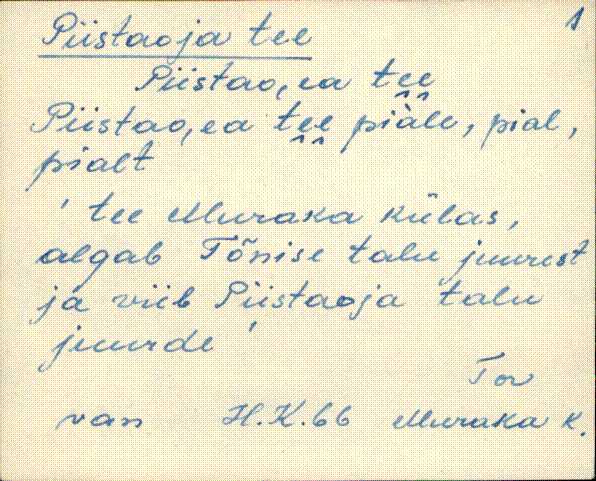 1
Piistaoja tee
Piistao,ea tẹẹ
Piistao,ea tẹẹ piàle, pial,
pialt
' tee Muraka külas,
algab Tõnise talu juurest
ja viib Piistaoja talu
juurde '
Tor
van H.K.66 Muraka k.